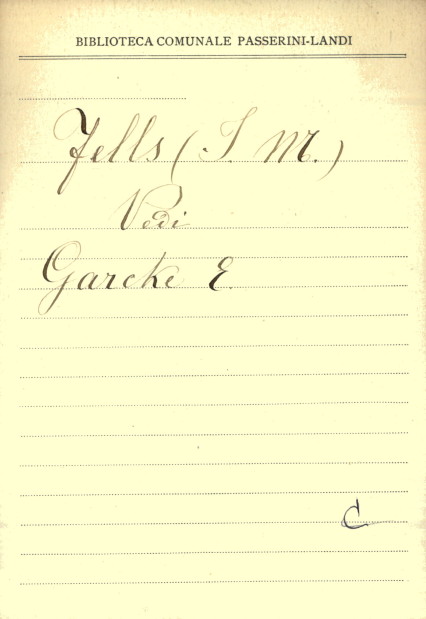 BIBLIOTECA COMUNALE PASSERINI-LANDI
Fells (J. M.)
Vedi
Garcke E.
C